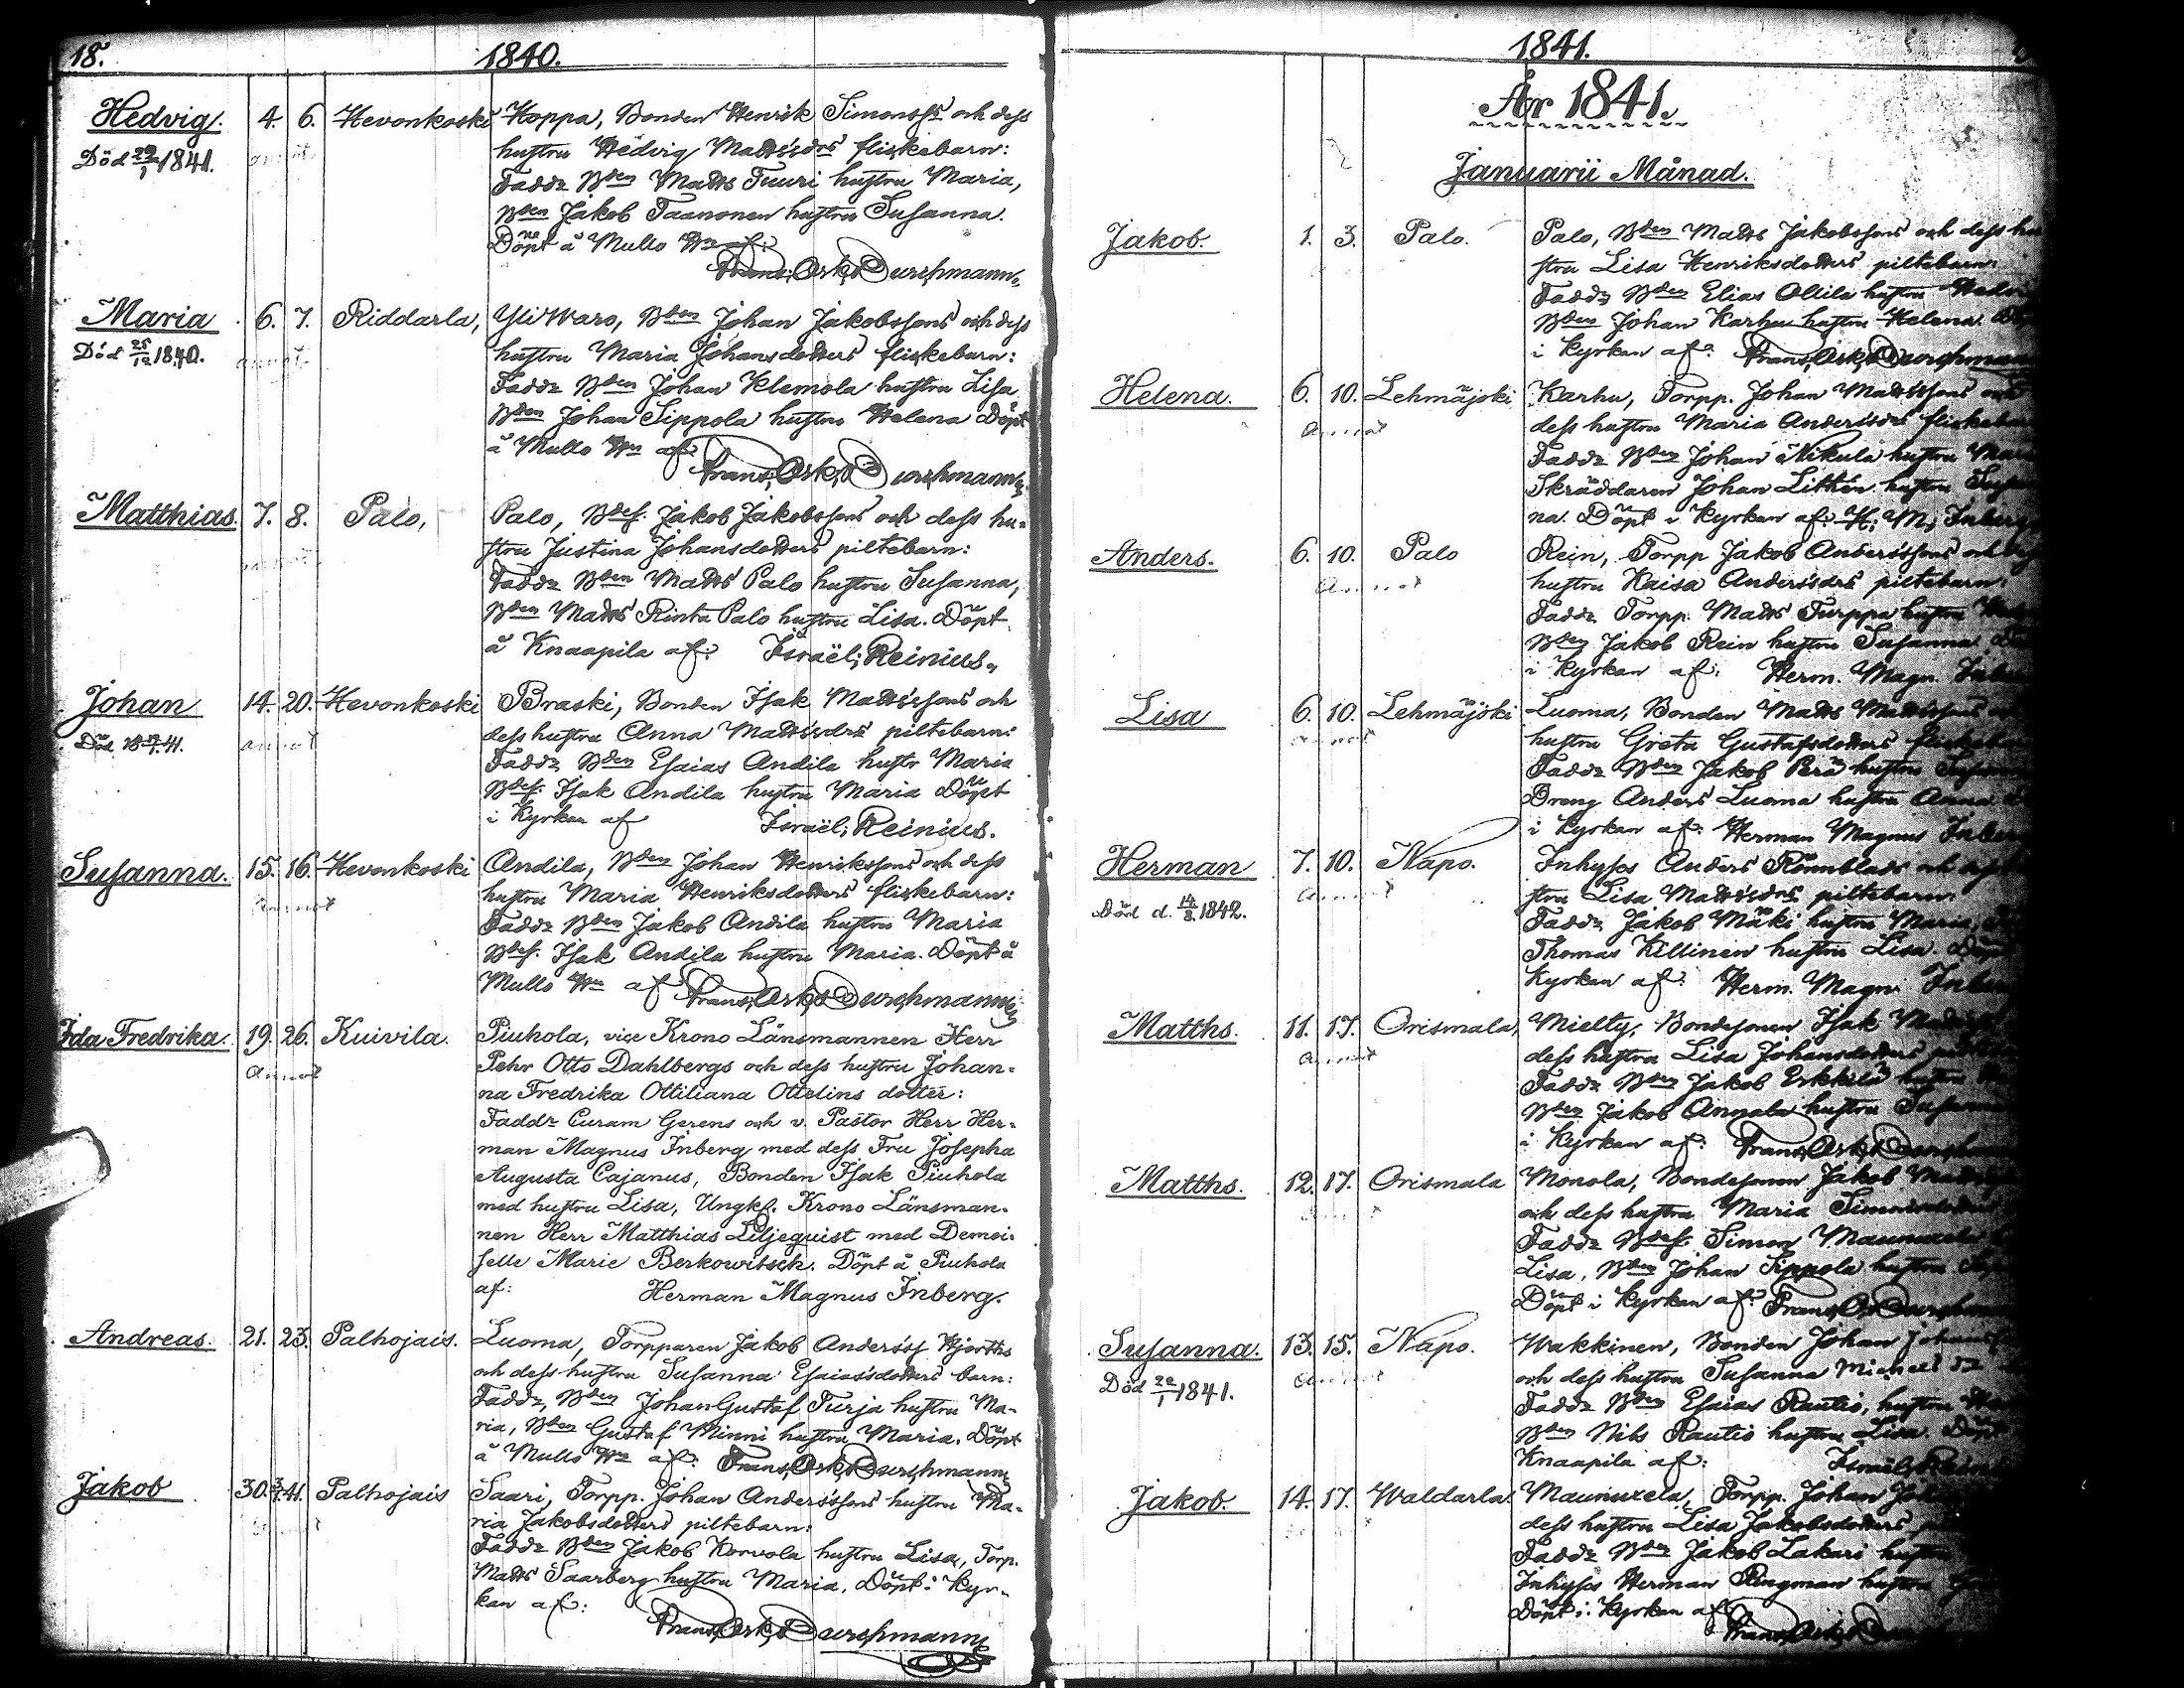 18.
1840.
Hedvig. 4. 6. Hevonkoski Koppa, Bonden Henrik Simonsss och dess
Död 29/1 1841. hustru Hedvig Mattsdrs flickebarn:
Faddr Bden Matts Tuuri hustru Maria,
Bden Jakob Taanonen hustru Susanna.
Döpt å Mullo Hn af:
Frans, Osk, Durchmann.
Maria 6. 7. Riddarla, Yliwaro, Bden Johan Jakobssons och dess
Död 25/12 1840. hustru Maria Johansdotters flickebarn:
Faddr Bden Johan Klemola hustru Lisa
Bden Johan Sippola hustru Helena Döpt
å Mullo Hn af
Frans, Osk, Durchmann
Matthias. 7. 8. Palo, Palo, Bdes. Jakob Jakobssons och dess hu-
stru Justina Johansdotters piltebarn:
Faddr Bden Matts Palo hustru Susanna,
Bden Matts Rinta Palo hustru Lisa. Döpt
å Knaapila af: Israël, Reinius.
Johan 14. 20. Hevonkoski Braski, Bonden Isak Mattssons och
Död 18 41. annot dess hustru Anna Mattsdrs piltebarn:
Faddr Bden Esaias Andila hustr Maria
Bdes. Isak Andila hustru Maria Döpt
i Kyrkan af Israël, Reinius.
Susanna. 15. 16. Hevonkoski Andila, Bden Johan Henrikssons och dess
annot hustru Maria Henriksdotters flickebarn:
Faddr Bden Jakob Andila hustru Maria
Bdes. Isak Andila hustru Maria. Döpt å
Mullo Hn af Frans, Osk, Durchmann
Ida Fredrika. 19. 26. Kuivila. Piuhola, vice Krono Länsmannen Herr
annot Pehr Otto Dahlbergs och dess hustru Johan-
na Fredrika Ottiliana Ottelins dotter:
Faddr Curam Gerens och v. Pastor Herr Her-
man Magnus Inberg med dess Fru Josepha
Augusta Cajanus, Bonden Isak Piuhola
med hustru Lisa, Ungk. Krono Länsman-
nen Herr Matthias Liljequist med Demoi-
selle Marie Berkowitsch. Döpt å Piuhola
af: Herman Magnus Inberg.
Andreas. 21. 23. Palhojais. Luoma, Torpparen Jakob Anderss Hjorths
och dess hustru Susanna Esaiasdotters barn:
Faddr, Bden Johan Gustaf Turja hustru Ma-
ria, Bden Gustaf Minni hustru Maria. Döpt
å Mullo Hn af: Frans, Osk, Durchmann
Jakob 30. 3/1 41. Palhojais Saari, Torpp. Johan Anderssons hustru Ma-
ria Jakobsdotters piltebarn:
Faddr Bden Jakob Korvola hustru Lisa, Torp.
Matts Saarberg hustru Maria. Döpt i Kyr-
kan af:
Frans, Osk, Durchmann
1841.
År 1841.
Januarii Månad.
Jakob. 1. 3. Palo. Palo, Bden Matts Jakobssons och dess hu
stru Lisa Henriksdotters piltebarn:
Faddr Bden Elias Ollila hustru
Bden Johan Karhu hustru Helena.
i Kyrkan af: Frans, Osk, Durchmann
Helena. 6. 10. Lehmäjoki Karhu, Torpp. Johan Mattssons och
annot dess hustru Maria Andersdrs
Faddr Bden Johan Nikula hustru
Skräddaren Johan Litthén hustru
na. Döpt i Kyrkan af: H. M. Inberg
Anders. 6. 10. Palo Rein, Torpp Jakob Anderssons och
annot hustru Kaisa Andersdrs piltebarn:
Faddr Torpp. Matts Turppa hustru
Bden Jakob Rein hustru Susanna
i Kyrkan af: Herm. Magn.
Lisa 6. 10. Lehmäjoki Luoma, Bonden Matts Mattssons
annot hustru Greta Gustafsdotters
Faddr Bden Jakob Perä hustru
Dreng Anders Luoma hustru Anna
i Kyrkan af: Herman Magnus
Herman 7. 10. Napo. Inhyses Anders Rönnblads och
Död d. 14/8 1842. annot stru Lisa Mattsdrs piltebarn:
Faddr Jakob Mäki hustru Maria
Thomas Killinen hustru Lisa. Döpt
Kyrkan af: Herm. Magn.
Matths. 11. 17. Orismala, Mielty, Bondesonen Isak
annot dess hustru Lisa Johansdotters
Faddr Bden Jakob Erkkilä hustru
Bden Jakob Annala hustru
i Kyrkan af: Frans, Osk, Durchmann
Matths. 12. 17. Orismala Monola, Bondesonen Jakob
och dess hustru Maria
Faddr Bdes. Simon
Lisa, Bden Johan Sippola hustru
Döpt i Kyrkan af: Frans, Osk, Durchmann
Susanna. 13. 15. Napo. Wakkinen, Bonden Johan
Död 20/1 1841. annot och dess hustru Susanna
Faddr Bden Esaias Rautio, hustru
Bden Nils Rautio hustru Lisa. Döpt
Knaapila af: Israël
Jakob. 14. 17. Waldarla. Maunuxela, Torpp. Johan
dess hustru Lisa Jakobsdotters
Faddr Bden Jakob Lakari
Inhyses Herman Ringman hustru
Döpt i Kyrkan af
Frans, Osk,